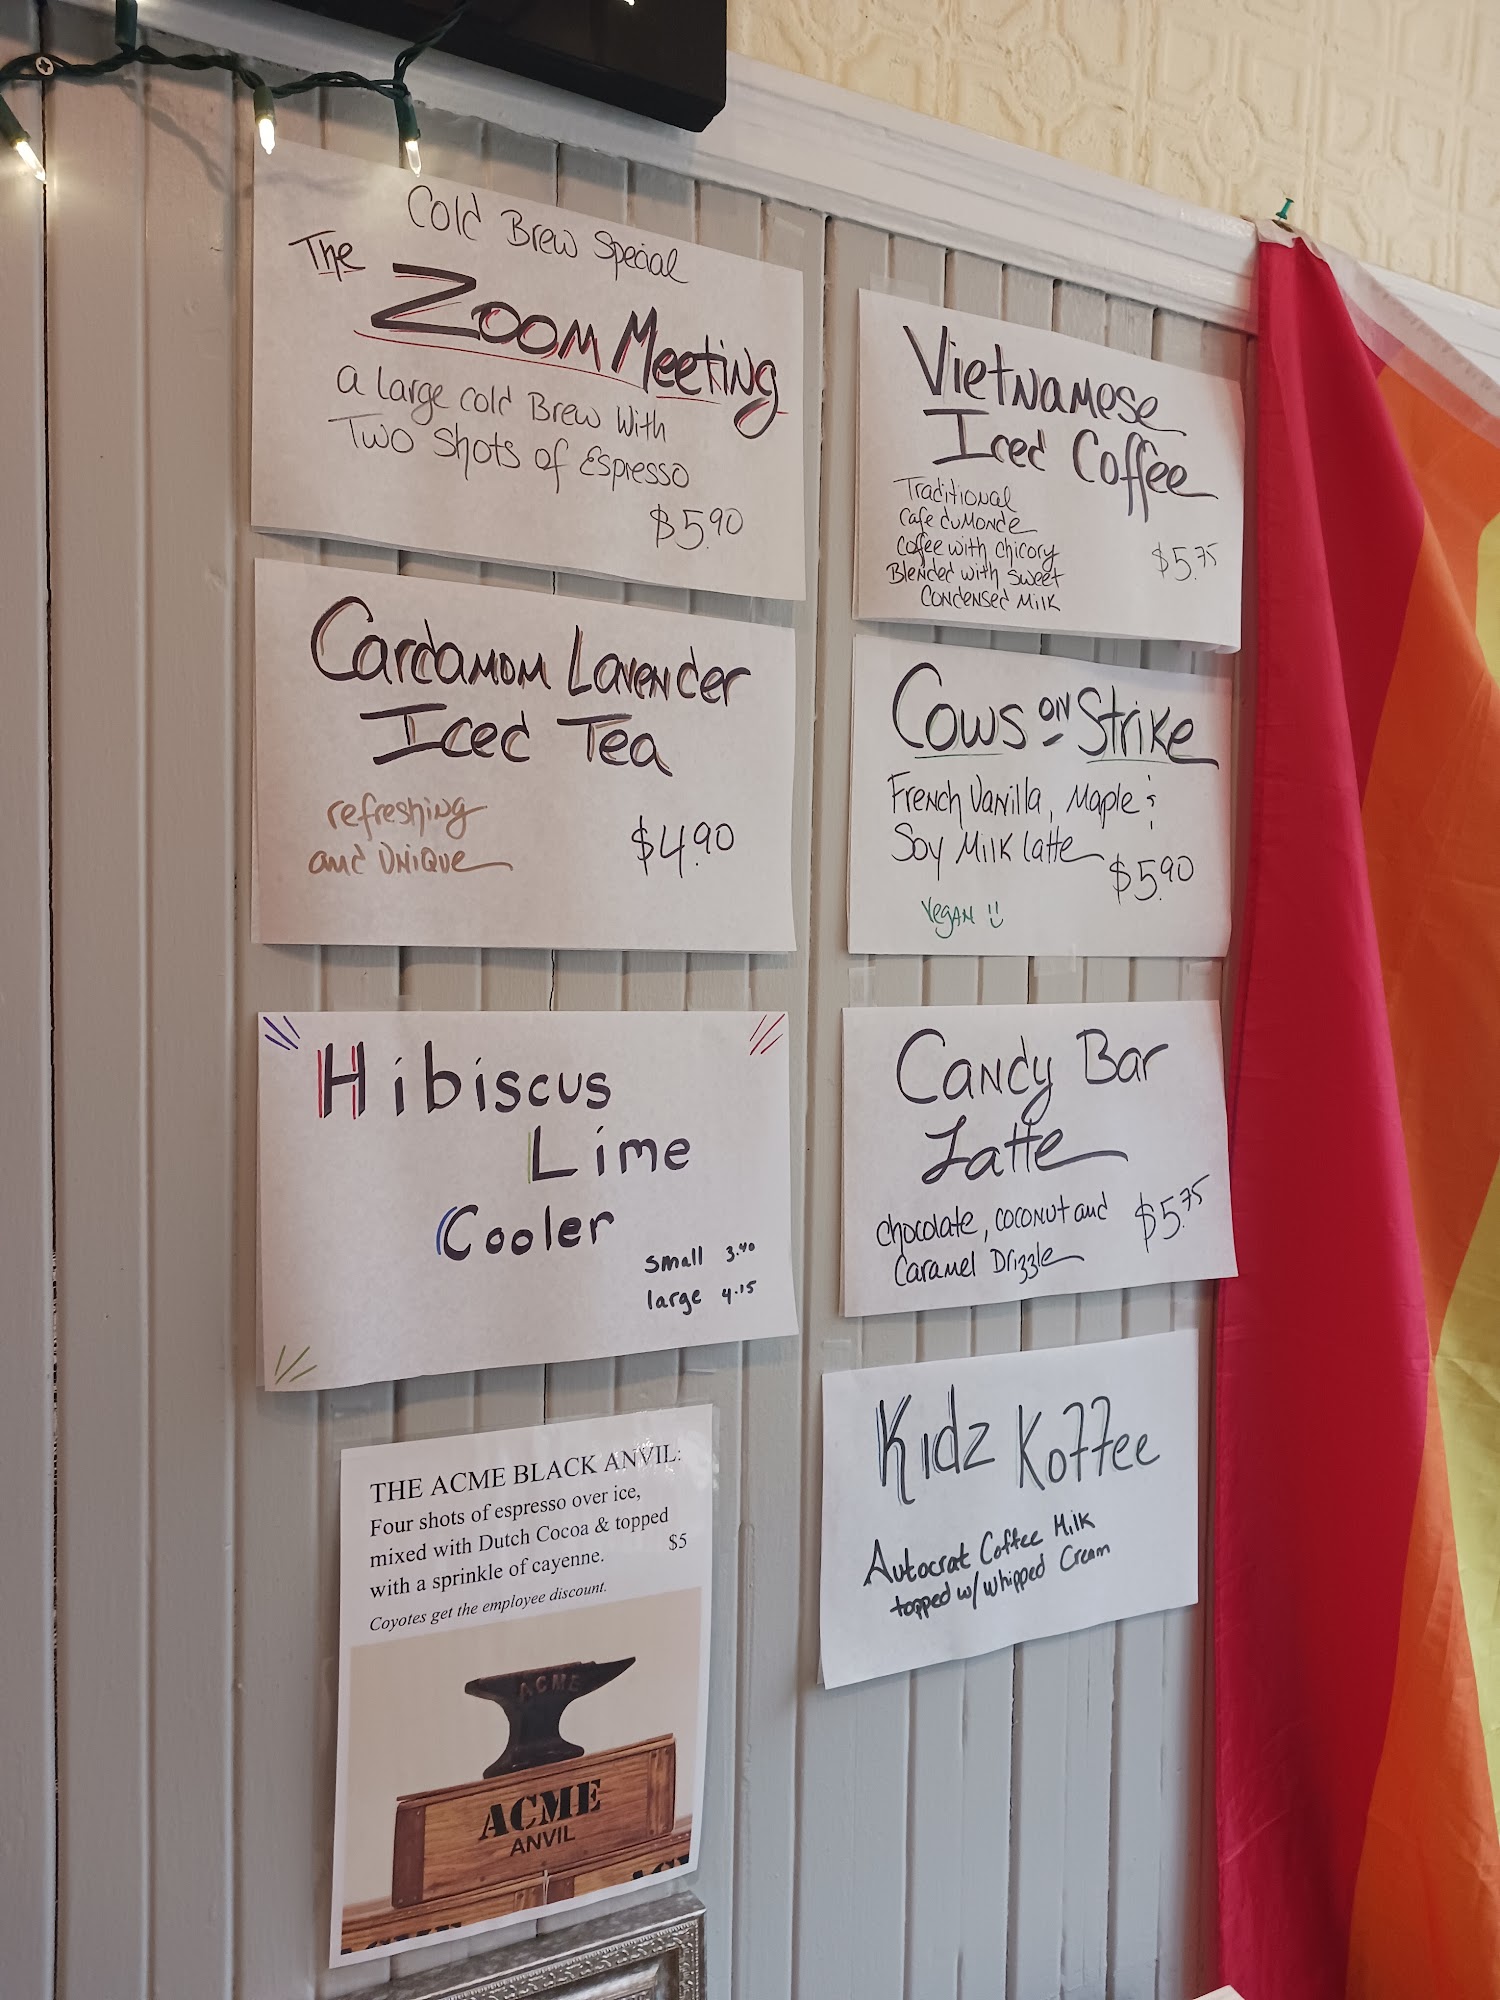 Cold Brew Special
The
Zoom Meeting
a large cold Brew With
Two Shots of Espresso
$5.90
Cardamom Lavender
Iced Tea
refreshing
and Unique
$4.90
Hibiscus
Lime
Cooler
small 3.40
large 4.15
THE ACME BLACK ANVIL:
Four shots of espresso over ice,
mixed with Dutch Cocoa & topped
with a sprinkle of cayenne.
$5
Coyotes get the employee discount.
ACME
ACME
ANVIL
ACME
Vietnamese
Iced Coffee
Traditional
Cafe duMonde
Coffee with chicory
Blended with sweet
Condensed Milk
$5.75
Cows on Strike
French Vanilla, Maple &
Soy Milk latte
$5.90
Vegan
Candy Bar
Latte
chocolate, coconut and
Caramel Drizzle
$5.75
Kidz Koffee
Autocrat Coffee Milk
topped w/ whipped Cream